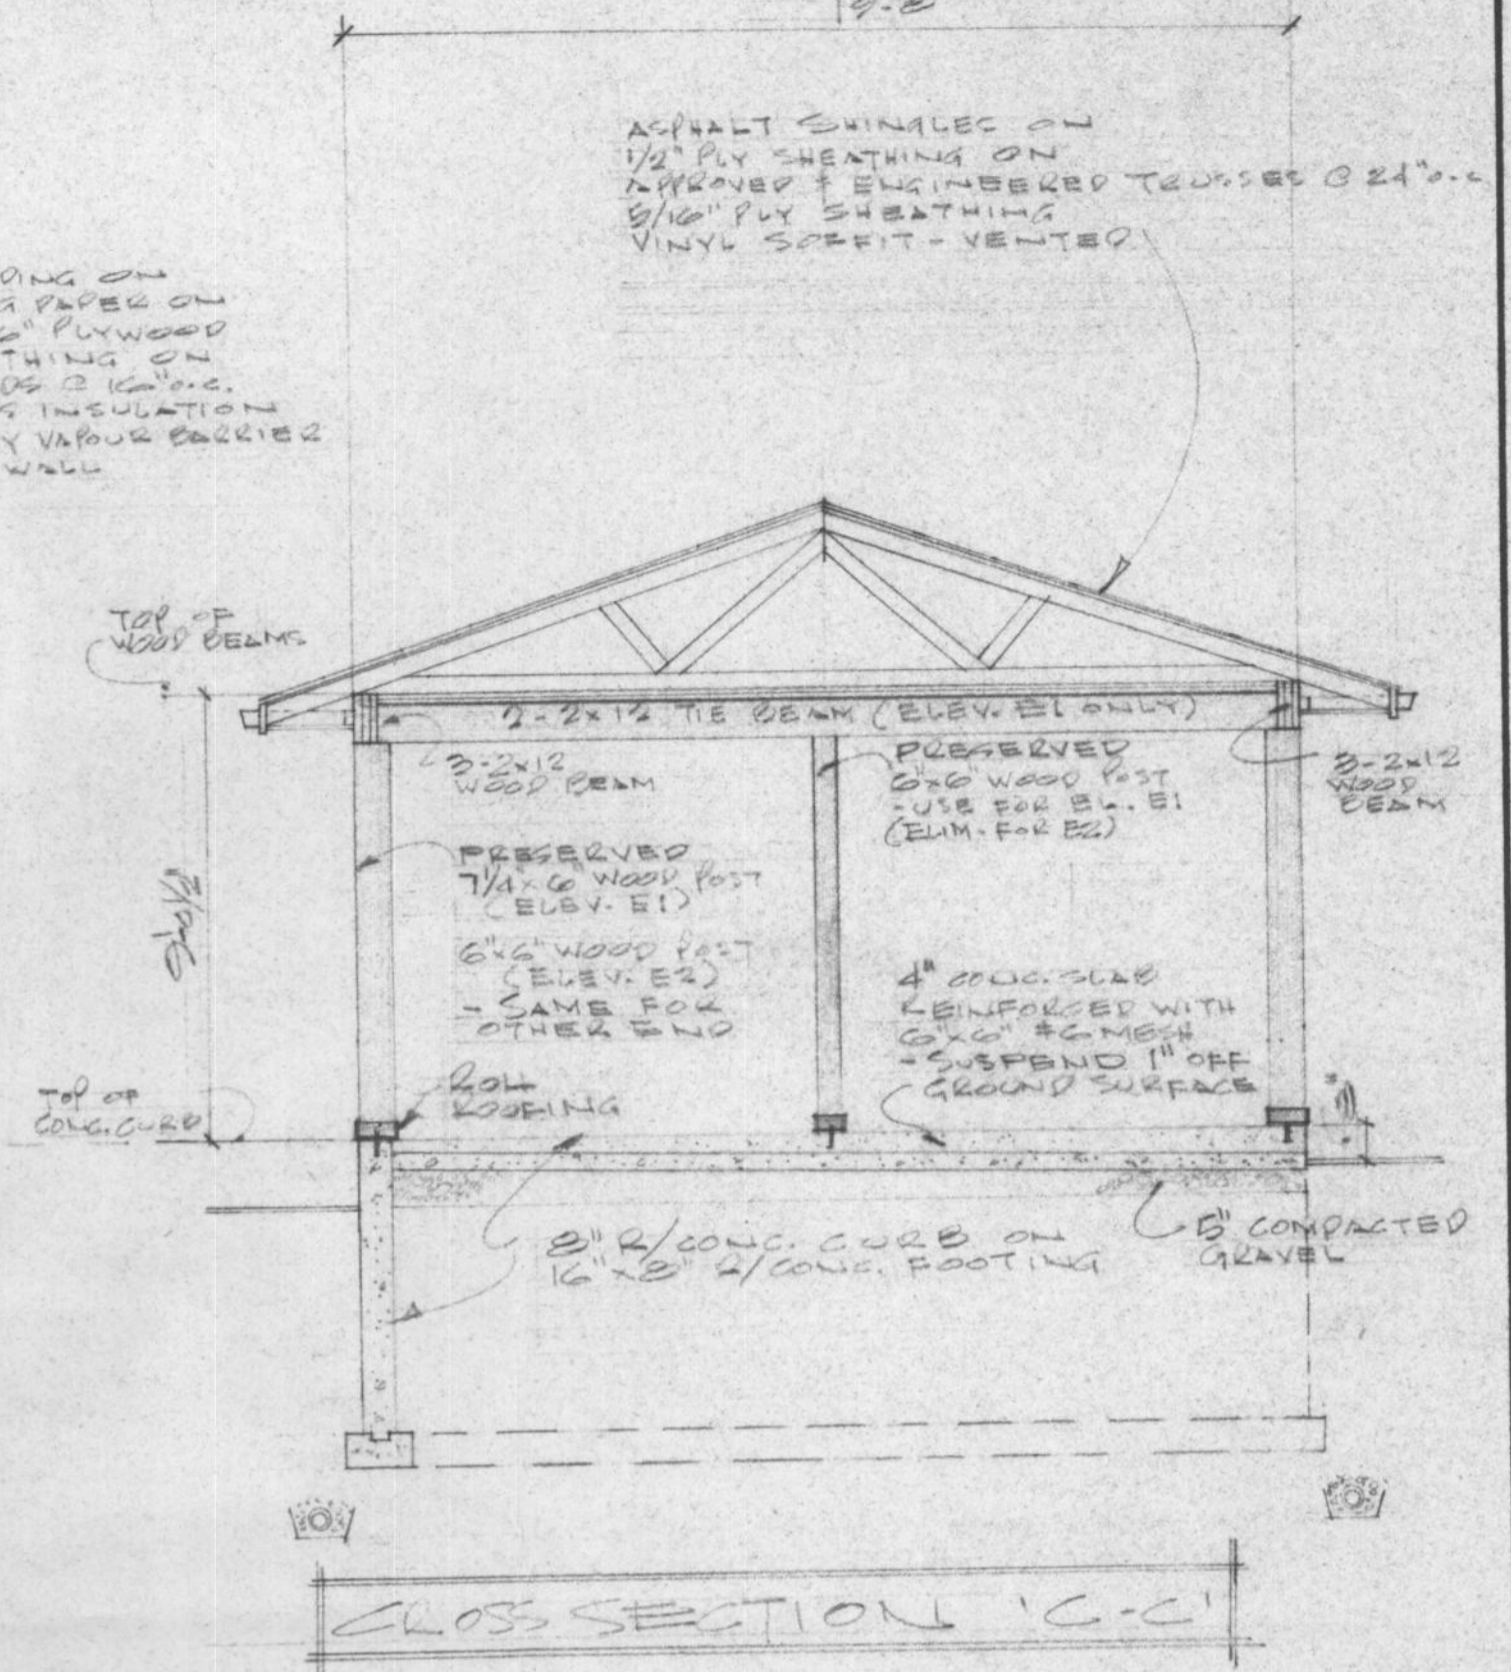 19'-8"
ASPHALT SHINGLES ON
1/2" PLY SHEATHING ON
APPROVED & ENGINEERED TRUSSES @ 24" o.c.
5/16" PLY SHEATHING
VINYL SOFFIT - VENTED
DING ON
G PAPER ON
6" PLYWOOD
THING ON
DS @ 16" o.c.
S INSULATION
Y VAPOUR BARRIER
WALL
TOP OF
WOOD BEAMS
2-2x12 TIE BEAM (ELEV. E1 ONLY)
3-2x12
WOOD BEAM
PRESERVED
6"x6" WOOD POST
- USE FOR EL. E1
(ELIM. FOR E2)
3-2x12
WOOD
BEAM
PRESERVED
7 1/4"x6" WOOD POST
(ELEV. E1)
6"x6" WOOD POST
(ELEV. E2)
- SAME FOR
OTHER END
4" CONC. SLAB
REINFORCED WITH
6"x6" #6 MESH
- SUSPEND 1" OFF
GROUND SURFACE
ROLL
ROOFING
TOP OF
CONC. CURB
8" R/CONC. CURB ON
16"x8" R/CONC. FOOTING
5" COMPACTED
GRAVEL
CROSS SECTION 'C-C'